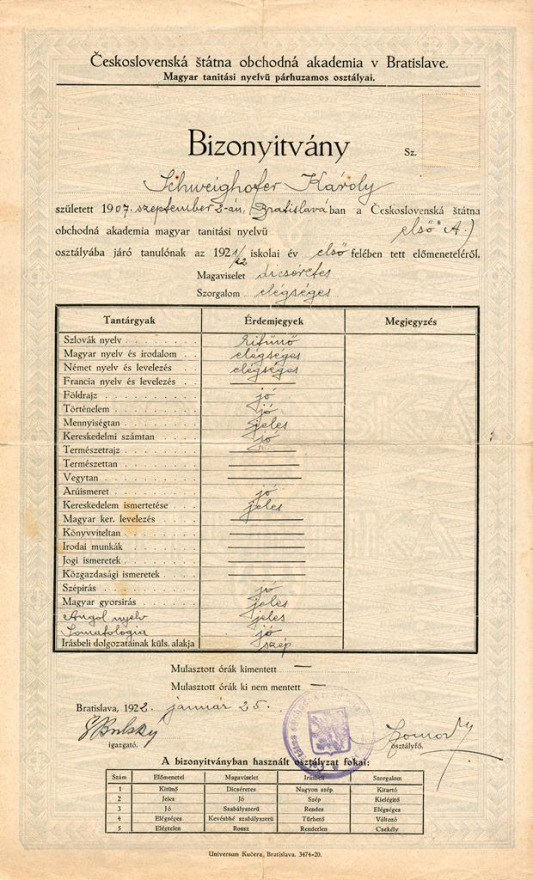 Československá štátna obchodná akademia v Bratislave.
Magyar tanitási nyelvü párhuzamos osztályai.
Bizonyitvány
Sz.
Schweighofer Károly
született 1907. szeptember 3-án, Bratislavában a Československá štátna
obchodná akademia magyar tanitási nyelvü első A.)
osztályába járó tanulónak az 1921/22 iskolai év első felében tett előmeneteléről.
Magaviselet dicséretes
Szorgalom elégséges
Tantárgyak Érdemjegyek Megjegyzés
Szlovák nyelv kitünő
Magyar nyelv és irodalom elégséges
Német nyelv és levelezés elégséges
Francia nyelv és levelezés
Földrajz jó
Történelem jó
Mennyiségtan jeles
Kereskedelmi számtan jó
Természetrajz
Természettan
Vegytan
Arúismeret jó
Kereskedelem ismertetése jeles
Magyar ker. levelezés
Könyvviteltan
Irodai munkák
Jogi ismeretek
Közgazdasági ismeretek
Szépirás jó
Magyar gyorsirás jeles
Angol nyelv jeles
Somatologia jó
Irásbeli dolgozatainak küls. alakja szép
Mulasztott órák kimentett —
Mulasztott órák ki nem mentett —
Bratislava, 1922. január 25.
igazgató.
osztályfő.
A bizonyitványban használt osztályzat fokai:
Szám Előmenetel Magaviselet Irásbeli Szorgalom
1 Kitünő Dicséretes Nagyon szép Kitartó
2 Jeles Jó Szép Kielégitő
3 Jó Szabályszerű Rendes Elégséges
4 Elégséges Kevésbbé szabályszerű Türhető Változó
5 Elégtelen Rossz Rendetlen Csekély
Universum Kučera, Bratislava. 3474-20.